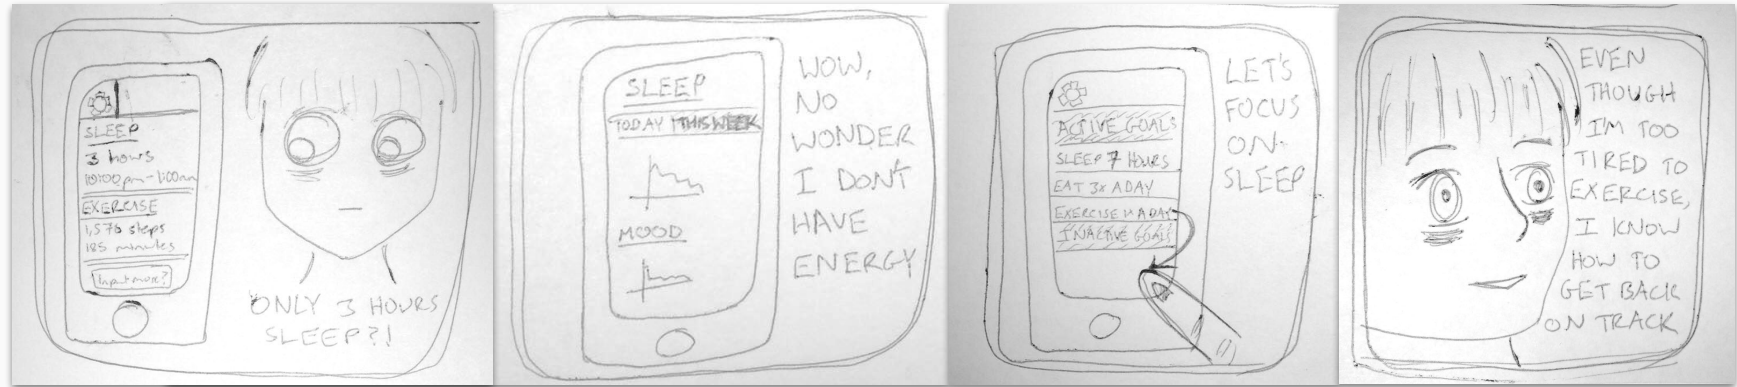 SLEEP
3 hours
10:00pm-1:00am
EXERCISE
1,576 steps
185 minutes
Input more?
ONLY 3 HOURS
SLEEP?!
SLEEP
TODAY | THIS WEEK
MOOD
WOW,
NO
WONDER
I DON'T
HAVE
ENERGY
ACTIVE GOALS
SLEEP 7 HOURS
EAT 3x A DAY
EXERCISE 1x A DAY
INACTIVE GOALS
LET'S
FOCUS
ON
SLEEP
EVEN
THOUGH
I'M TOO
TIRED TO
EXERCISE,
I KNOW
HOW TO
GET BACK
ON TRACK